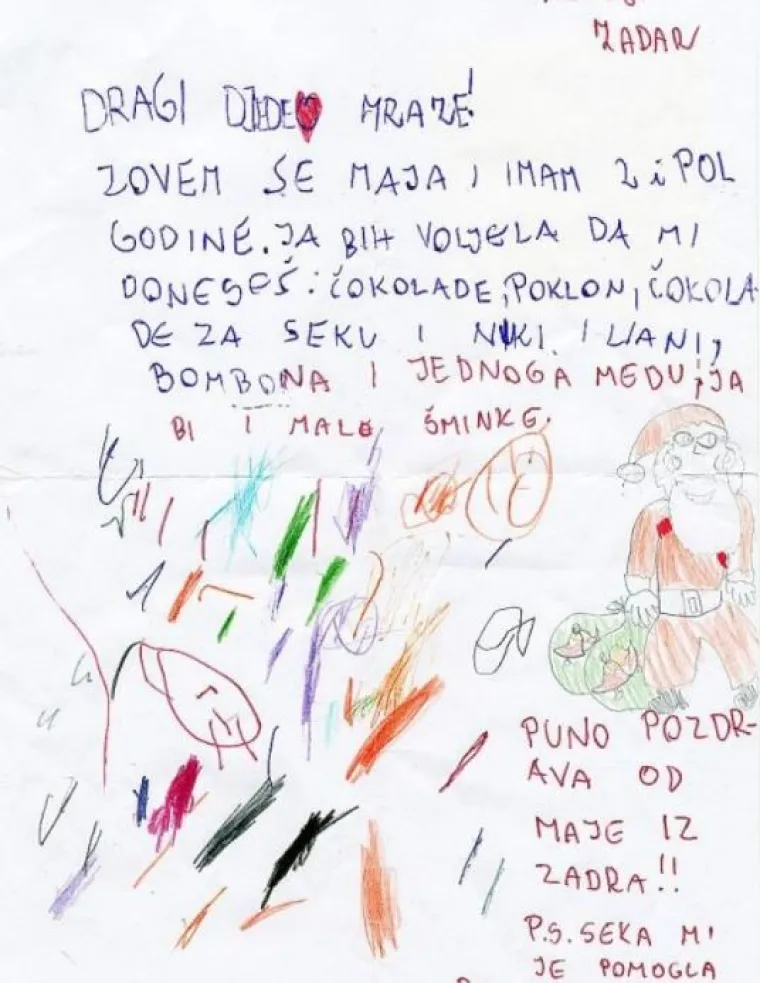 ZADAR
DRAGI DJEDE MRAZE!
ZOVEM SE MAJA I IMAM 2 i POL
GODINE. JA BIH VOLJELA DA MI
DONESEŠ: ČOKOLADE, POKLON, ČOKOLA
DE ZA SEKU I NIKI I
BOMBONA I JEDNOGA MEDU, JA
BI I MALO ŠMINKE.
PUNO POZDR-
AVA OD
MAJE IZ
ZADRA!!
P.S. SEKA MI
JE POMOGLA